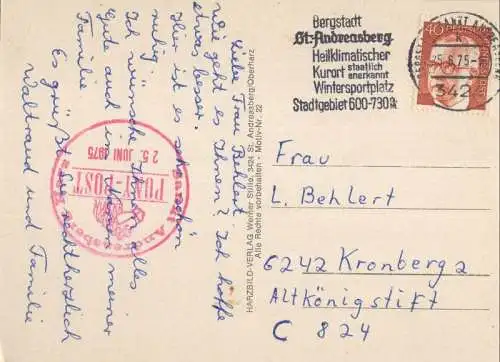 Liebe Frau Behlert
wie geht es Ihnen? Ich hoffe
etwas besser.
Hier ist es sehr schön
ruhig.
Ich wünsche Ihnen alles
Gute auch im Namen meiner
Familie
Es grüßt Sie recht herzlich
Waltraud und Familie
PUPI-POST
25. JUNI 1975
HARZBILD-VERLAG Werner Stille, 3424 St. Andreasberg/Oberharz
Alle Rechte vorbehalten - Motiv-Nr. 22
Bergstadt
St. Andreasberg
Heilklimatischer
Kurort staatlich anerkannt
Wintersportplatz
Stadtgebiet 600-730m
40
342
Frau
L. Behlert
6242 Kronberg 2
Altkönigstift
C 824